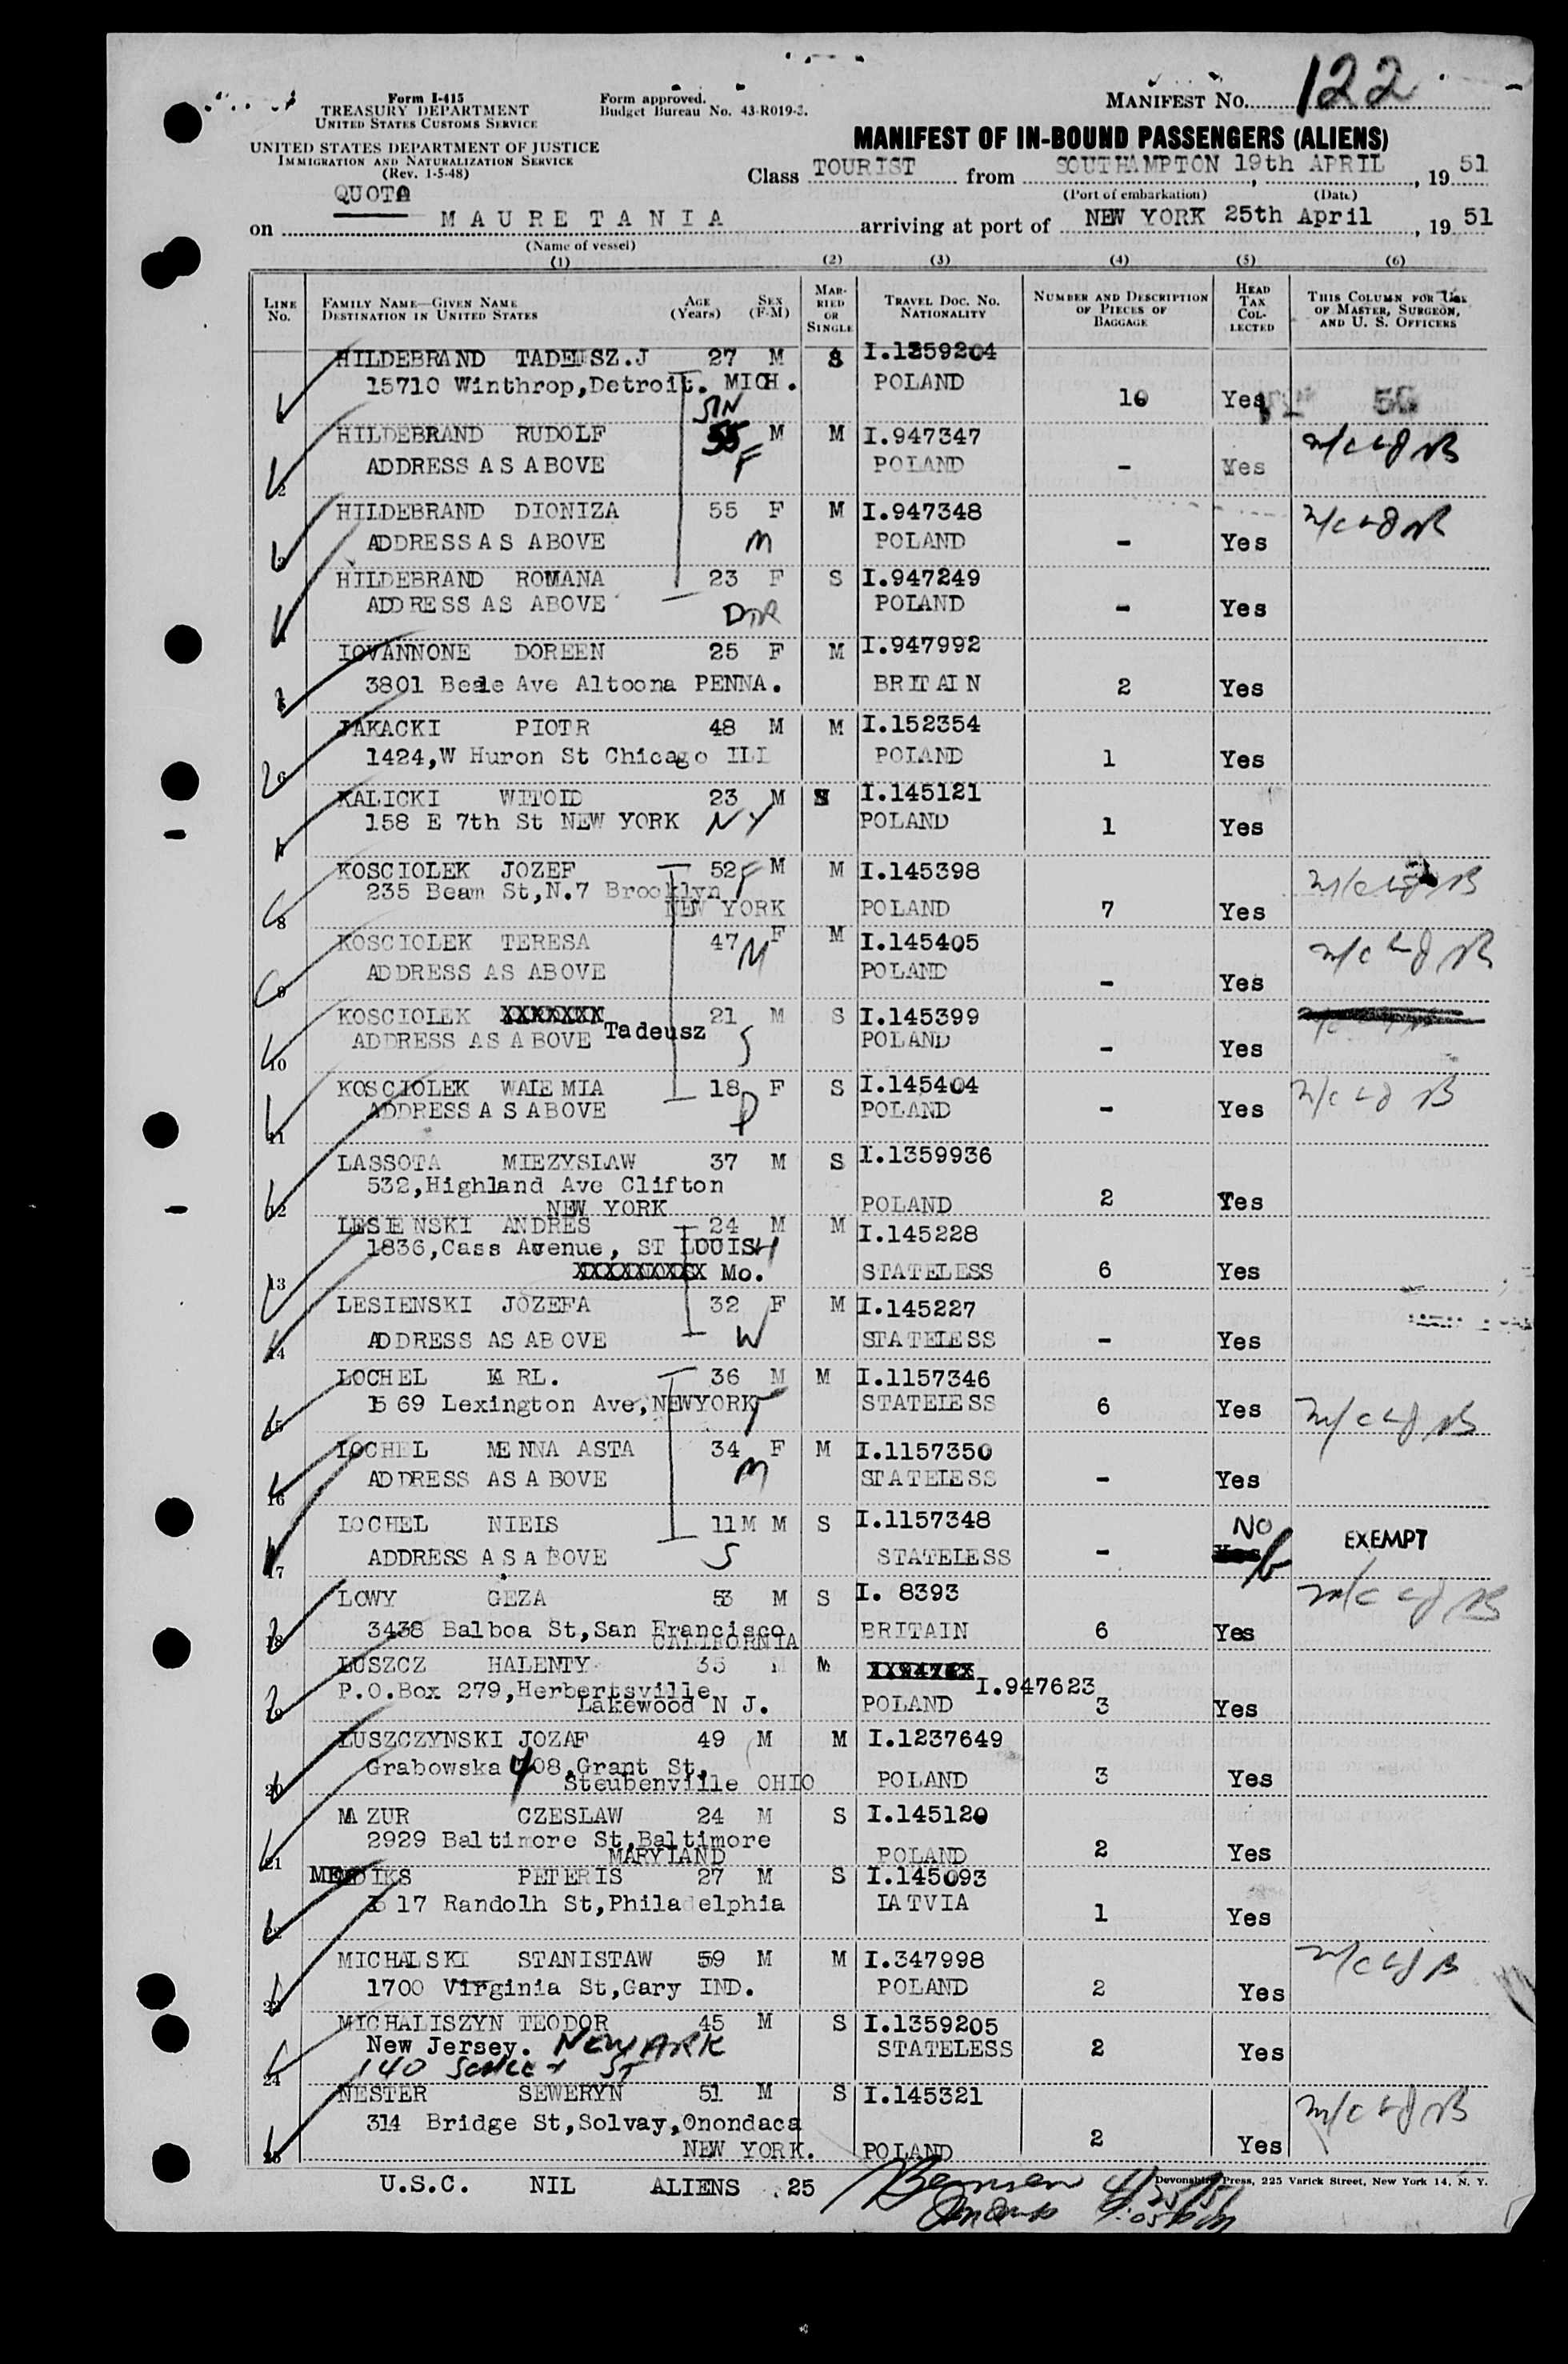 Form I-415
TREASURY DEPARTMENT
UNITED STATES CUSTOMS SERVICE
UNITED STATES DEPARTMENT OF JUSTICE
IMMIGRATION AND NATURALIZATION SERVICE
(Rev. 1-5-48)
Form approved.
Budget Bureau No. 43-R019-3.
MANIFEST NO. 122
MANIFEST OF IN-BOUND PASSENGERS (ALIENS)
Class TOURIST from SOUTHAMPTON 19th APRIL, 19 51
(Port of embarkation) (Date)
QUOTA
on MAURETANIA arriving at port of NEW YORK 25th April, 19 51
(Name of vessel)
(1) (2) (3) (4) (5) (6)
LINE NO. FAMILY NAME—GIVEN NAME DESTINATION IN UNITED STATES AGE (YEARS) SEX (F-M) MARRIED OR SINGLE TRAVEL DOC. NO. NATIONALITY NUMBER AND DESCRIPTION OF PIECES OF BAGGAGE HEAD TAX COLLECTED THIS COLUMN FOR USE OF MASTER, SURGEON, AND U. S. OFFICERS
HILDEBRAND TADEUSZ.J 27 M S I.1359204
15710 Winthrop,Detroit. MICH. POLAND 10 Yes
SIN
2 HILDEBRAND RUDOLF 55 M M I.947347
ADDRESS AS ABOVE F POLAND - Yes
HILDEBRAND DIONIZA 55 F M I.947348
ADDRESS AS ABOVE M POLAND - Yes
HILDEBRAND ROMANA 23 F S I.947249
ADDRESS AS ABOVE POLAND - Yes
IOVANNONE DOREEN 25 F M I.947992
3801 Beale Ave Altoona PENNA. BRITAIN 2 Yes
6 JAKACKI PIOTR 48 M M I.152354
1424,W Huron St Chicago ILL POLAND 1 Yes
KALICKI WITOID 23 M S I.145121
158 E 7th St NEW YORK NY POLAND 1 Yes
8 KOSCIOLEK JOZEF 52 F M M I.145398
235 Beam St,N.7 Brooklyn
NEW YORK POLAND 7 Yes
9 KOSCIOLEK TERESA 47 M F M I.145405
ADDRESS AS ABOVE POLAND - Yes
10 KOSCIOLEK XXXXXXX Tadeusz 21 M S I.145399
ADDRESS AS ABOVE S POLAND - Yes
11 KOSCIOLEK WALEMIA 18 F S I.145404
ADDRESS AS ABOVE D POLAND - Yes
12 LASSOTA MIEZYSLAW 37 M S I.1359936
532,Highland Ave Clifton
NEW YORK POLAND 2 Yes
13 LESIENSKI ANDRES 24 M M I.145228
1836,Cass Avenue, ST LOUIS H
XXXXXXXXX Mo. STATELESS 6 Yes
14 LESIENSKI JOZEFA 32 F M I.145227
ADDRESS AS ABOVE W STATELESS - Yes
15 LOCHEL KARL. 36 M M I.1157346
1569 Lexington Ave,NEWYORK F STATELESS 6 Yes
16 LOCHEL MENNA ASTA 34 F M I.1157350
ADDRESS AS ABOVE M STATELESS - Yes
17 LOCHEL NIELS 11M M S I.1157348 NO
ADDRESS AS ABOVE S STATELESS - EXEMPT
18 LOWY GEZA 53 M S I. 8393
3438 Balboa St,San Francisco
CALIFORNIA BRITAIN 6 Yes
19 LUSZCZ HALENTY 35 M M I.947623
P.O.Box 279,Herbertsville
Lakewood N J. POLAND 3 Yes
20 LUSZCZYNSKI JOZAF 49 M M I.1237649
Grabowska 408,Grant St,
Steubenville OHIO POLAND 3 Yes
21 MAZUR CZESLAW 24 M S I.145120
2929 Baltimore St,Baltimore
MARYLAND POLAND 2 Yes
22 PETERIS 27 M S I.145093
1517 Randolh St,Philadelphia LATVIA 1 Yes
23 MICHALSKI STANISTAW 59 M M I.347998
1700 Virginia St,Gary IND. POLAND 2 Yes
24 MICHALISZYN TEODOR 45 M S I.1359205
New Jersey. NEWARK STATELESS 2 Yes
140 ST
25 NESTER SEWERYN 51 M S I.145321
314 Bridge St,Solvay,Onondaca
NEW YORK. POLAND 2 Yes
U.S.C. NIL ALIENS 25
4/25/51
Devonshire Press, 225 Varick Street, New York 14, N. Y.